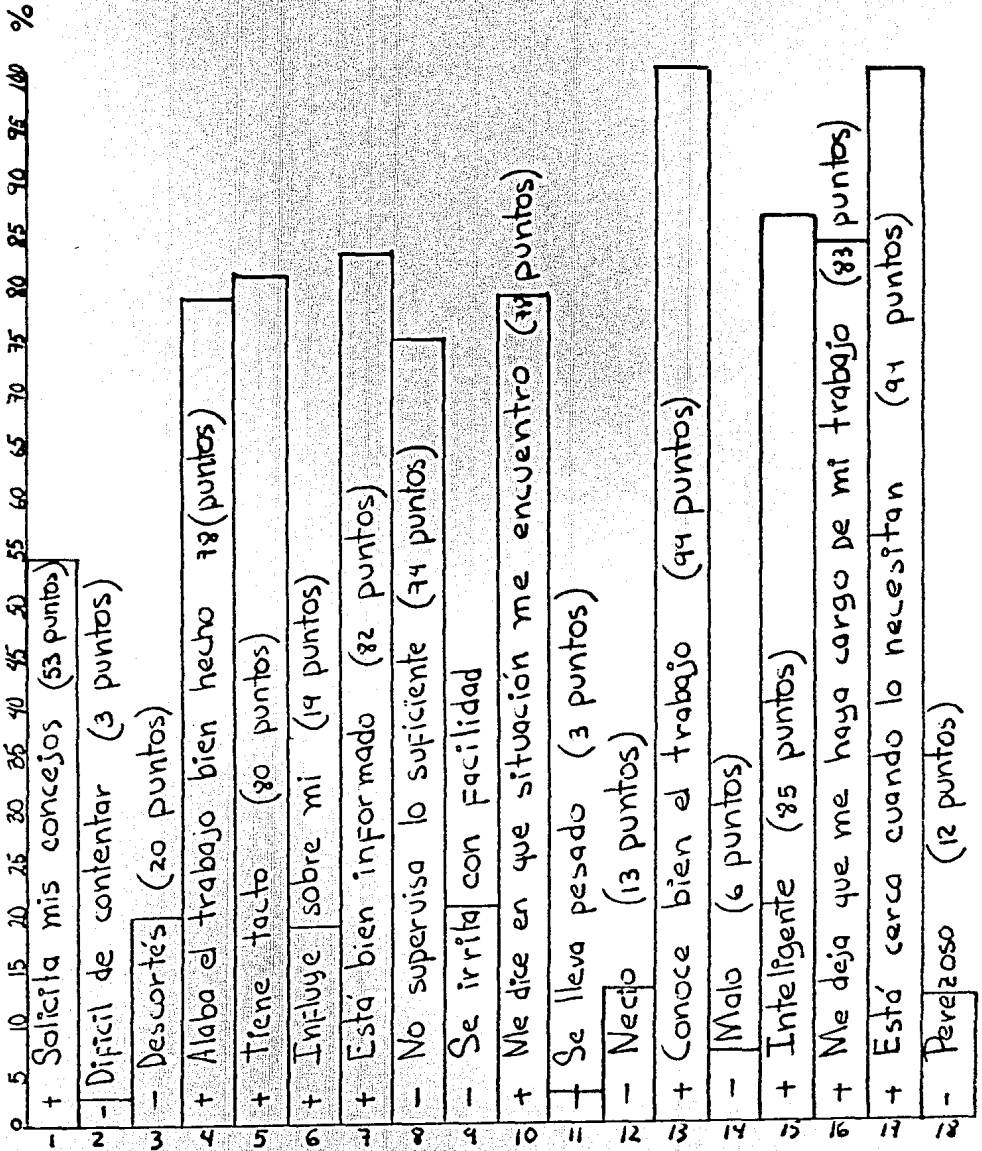 %
0 5 10 15 20 25 30 35 40 45 50 55 60 65 70 75 80 85 90 95 100
1 + Solicita mis concejos (53 puntos)
2 - Dificil de contentar (3 puntos)
3 - Descortés (20 puntos)
4 + Alaba el trabajo bien hecho 78 (puntos)
5 + Tiene tacto (80 puntos)
6 + Influye sobre mi (19 puntos)
7 + Está bien informado (82 puntos)
8 - No supervisa lo suficiente (74 puntos)
9 - Se irrita con facilidad
10 + Me dice en que situación me encuentro (78 puntos)
11 + Se lleva pesado (3 puntos)
12 - Necio (13 puntos)
13 + Conoce bien el trabajo (94 puntos)
14 - Malo (6 puntos)
15 + Inteligente (85 puntos)
16 + Me deja que me haya cargo de mi trabajo (83 puntos)
17 + Está cerca cuando lo necesitan (94 puntos)
18 - Perezoso (12 puntos)